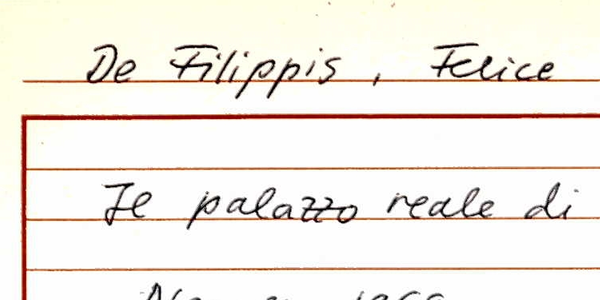 De Filippis, Felice
Je palazzo reale di